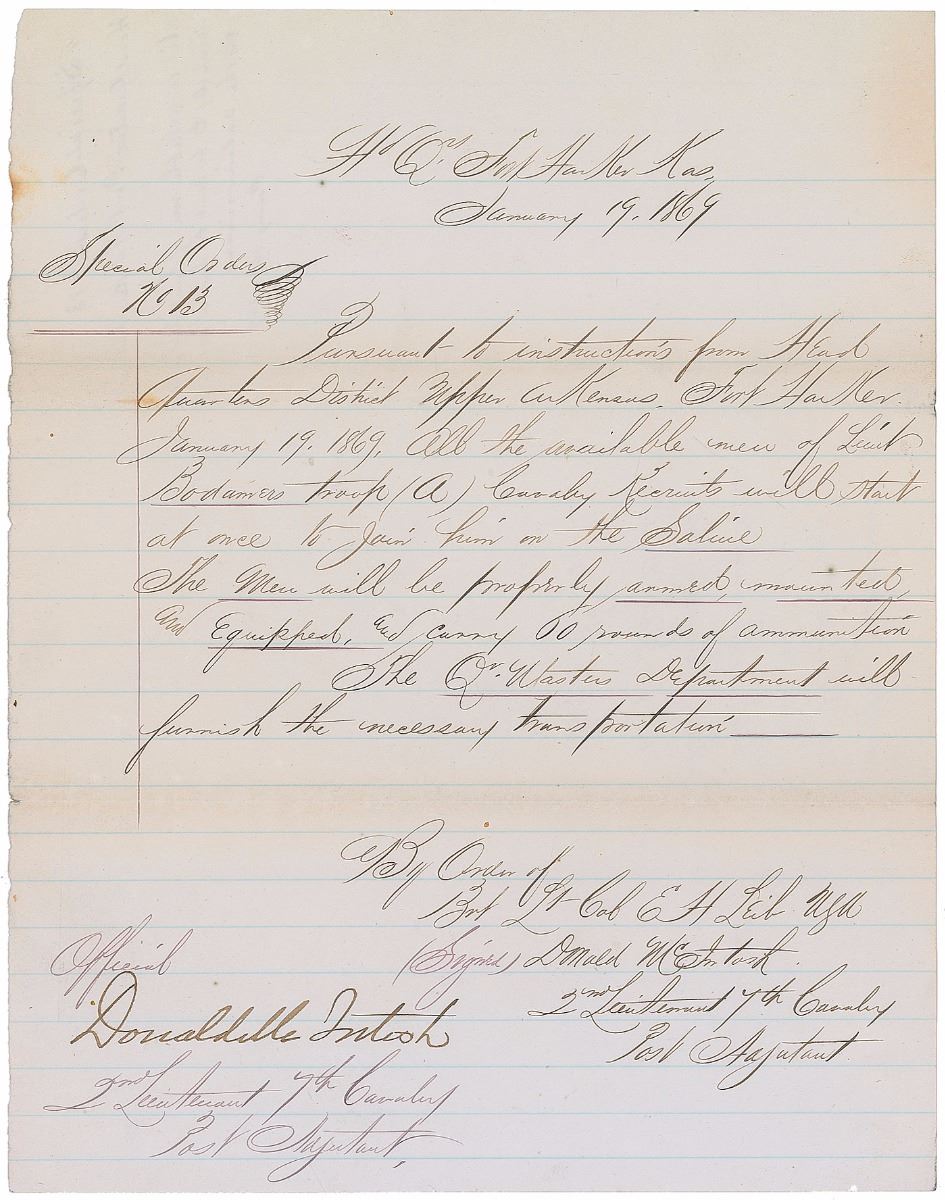 Hd Qrs Fort Harker Kas.
January 19. 1869
Special Orders
No 13
Pursuant to instructions from Head
Quarters District Upper Arkensas. Fort Harker.
January 19, 1869, All the available men of Lieut
Bodamers troop (A) Cavalry Recruits will start
at once to join him on the Saline
The Men will be properly armed, mounted,
and Equipped, and carry 60 rounds of ammunition
The Qr. Masters Department will
furnish the necessary transportation
By Order of
Bvt Lt Col E H Leib USA
Official (Signed) Donald McIntosh.
Donald McIntosh 2nd Lieutenant 7th Cavalry
Post Adjutant.
2nd Lieutenant 7th Cavalry
Post Adjutant,